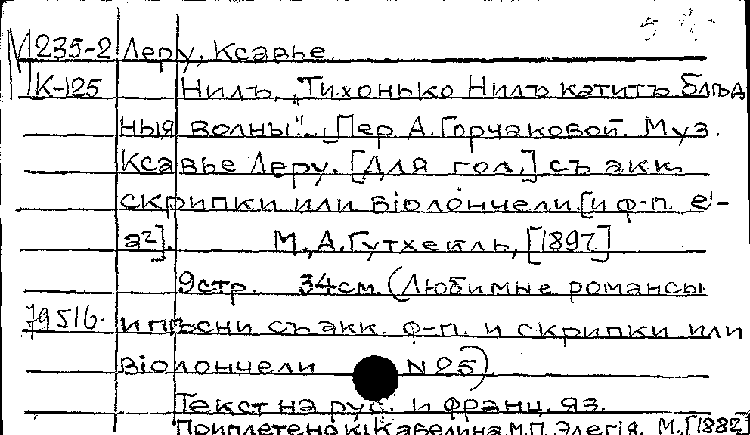 М 235-2 Леру, Ксавье
К-125 Нилъ. „Тихонько Нилъ катитъ блѣд
ныя волны". Пер. А. Горчаковой. Муз.
Ксавье Леру. [Для гол.] съ акк.
скрипки или віолончели [и ф-п. e¹-
a²]. М., А. Гутхейль, [1897]
9 стр. 34 см. (Любимые романсы
79516. и пѣсни съ акк. ф-п. и скрипки или
віолончели N 25)
Текст на рус. и франц. яз.
Приплетено к: Кавелина М.П. Элегія. М. [1882]